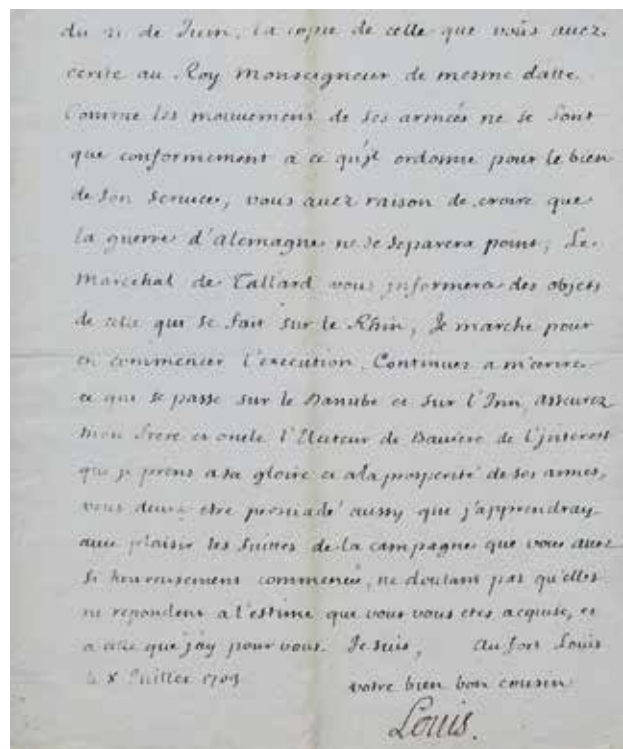 du 21 de Juin, la copie de celle que vous auez
ecrite au Roy Monseigneur de mesme datte.
Comme les mouuemens de ses armeés ne se font
que conformement a ce qu'jl ordonne pour le bien
de son seruice, vous auez raison de croire que
la guerre d'alemagne ne se separera point; Le
Marechal de Tallard vous jnformera des objets
de celle qui se fait sur le Rhin, Je marche pour
en commencer l'execution. Continuez a m'ecrire
ce qui se passe sur le Danube et sur l'Inn, asseurez
mon frere et oncle l'Electeur de Bauiere de l'jnterest
que je prens a sa gloire et a la prosperité de ses armes,
vous deuez estre persuadé aussy que j'apprendray
auec plaisir les suittes de la campagne que vous auez
si heureusement commencée, ne doutant pas qu'elles
ne repondent a l'estime que vous vous etes acquise, et
a celle que j'ay pour vous. Je suis, au fort Louis
le 8 Juillet 1703 votre bien bon cousin
Louis.